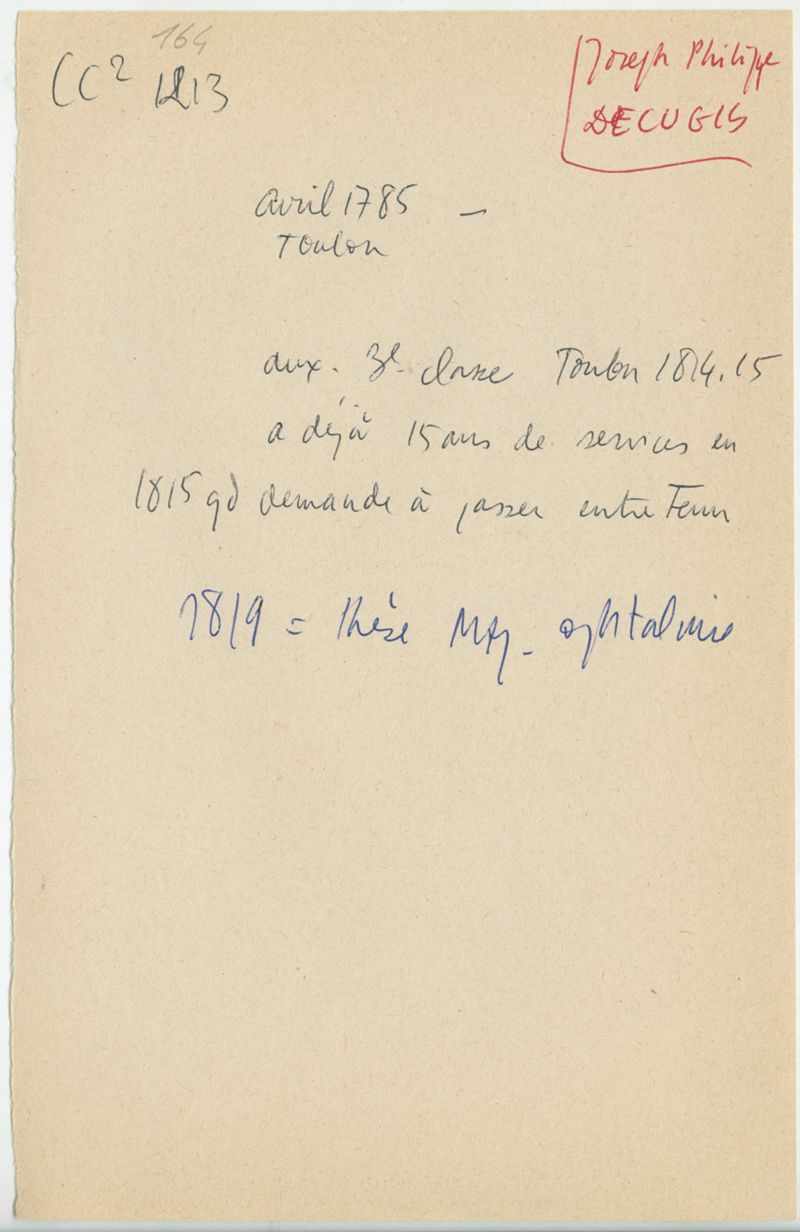 164
CC2 1213
Joseph Philippe
DECUGIS
avril 1785 —
Toulon
aux. 3e classe Toulon 1814.15
a déjà 15 ans de services en
1815 qd demande à passer entretenu
1819 = thèse - ophtalmie